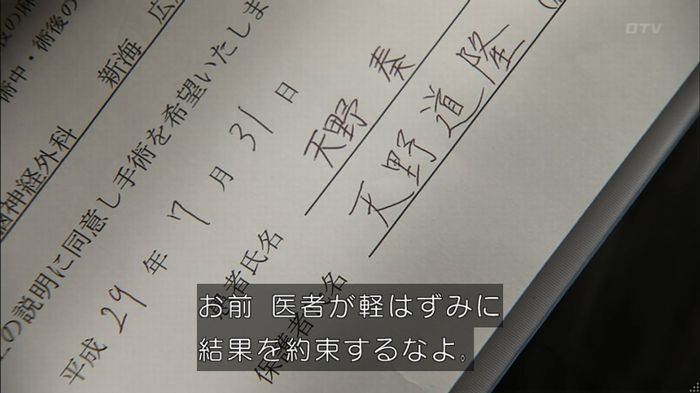 OTV
術中・術後の
脳神経外科 新海 広
の説明に同意し手術を希望いたしま
平成 29 年 7 月 31 日
者氏名 天野 奏
保護者 名 天野道隆
お前 医者が軽はずみに
結果を約束するなよ。